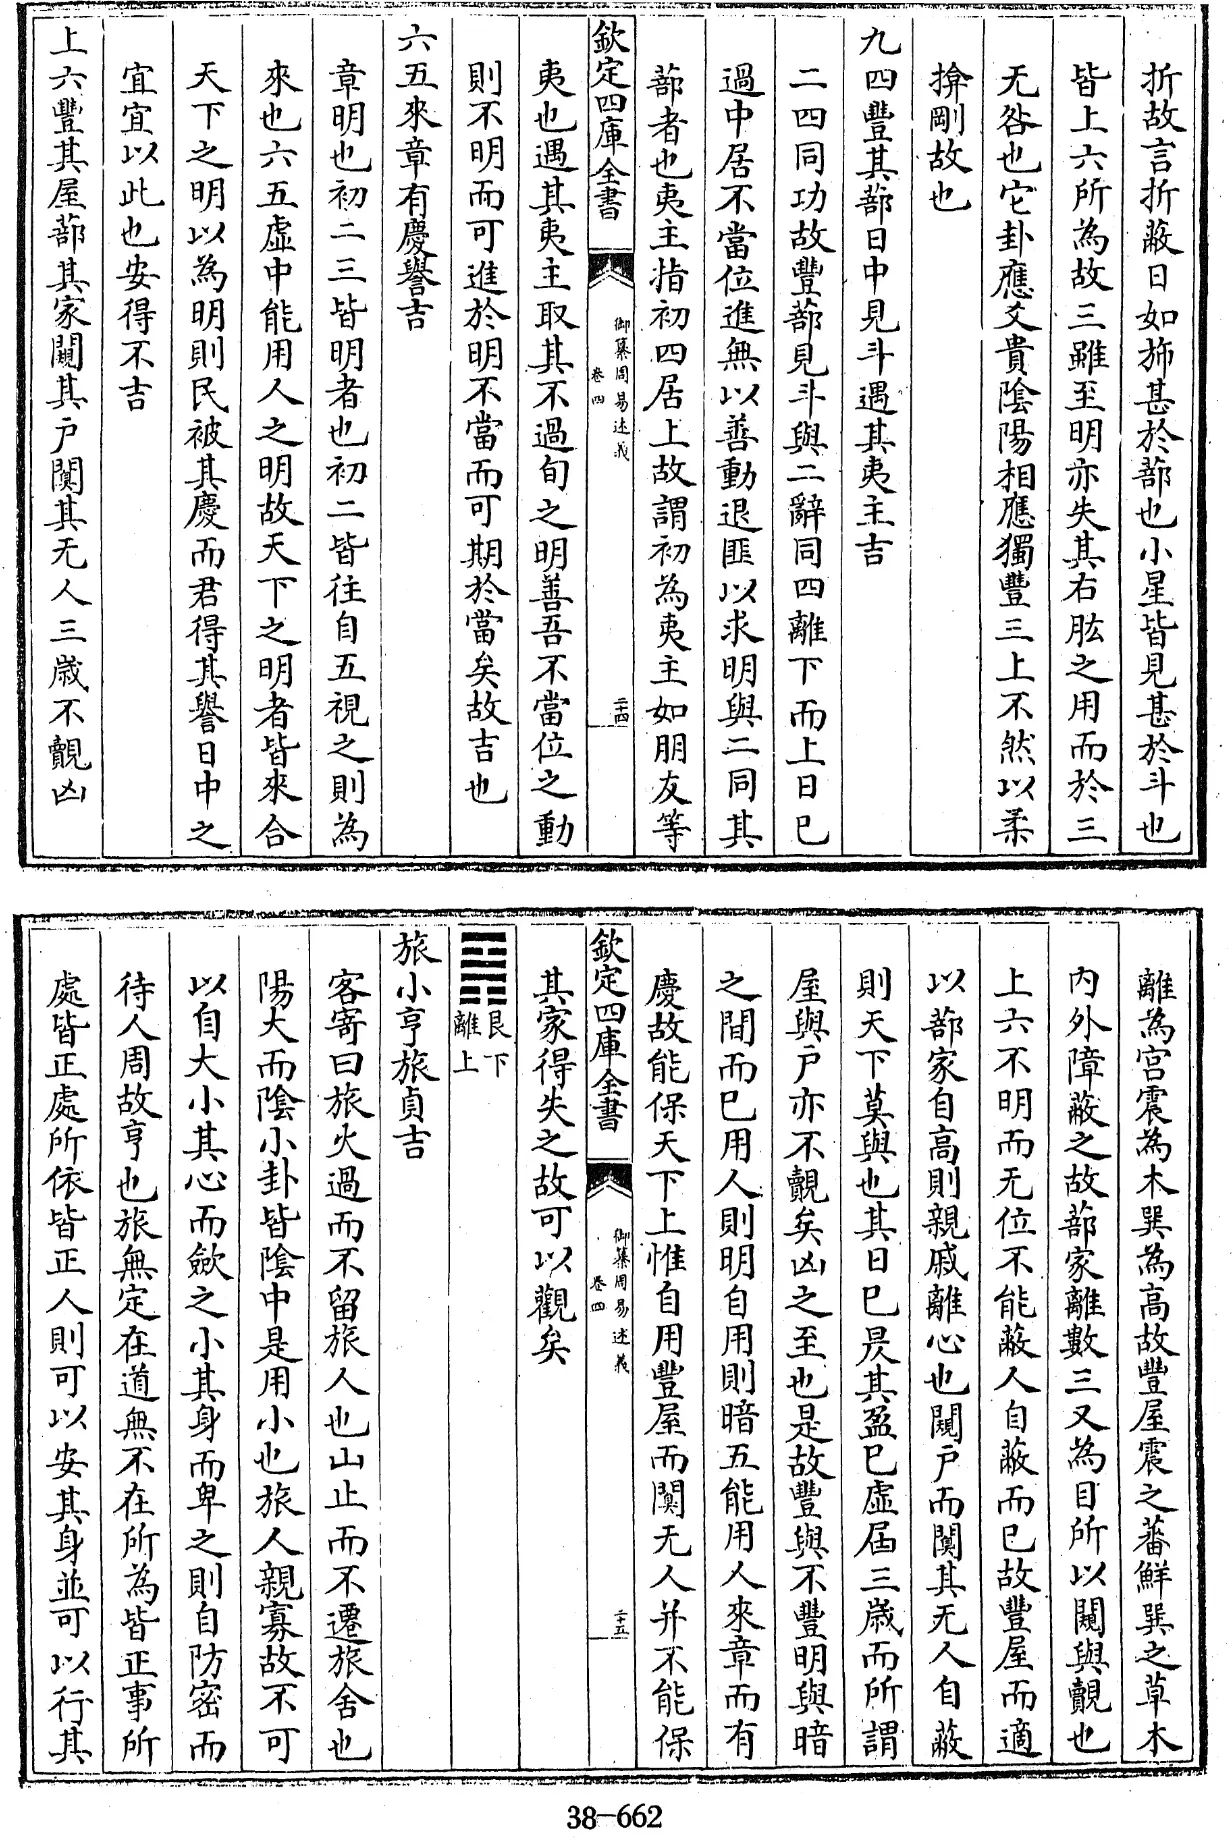 折故言折蔽日如斾甚於蔀也小星皆見甚於斗也
皆上六所為故三雖至明亦失其右肱之用而於三
无咎也它卦應爻貴陰陽相應獨豐三上不然以柔
揜剛故也
九四豐其蔀日中見斗遇其夷主吉
二四同功故豐蔀見斗與二辭同四離下而上日已
過中居不當位進無以善動退匪以求明與二同其
蔀者也夷主指初四居上故謂初為夷主如朋友等
欽定四庫全書
御纂周易述義
卷四
二十四
夷也遇其夷主取其不過旬之明善吾不當位之動
則不明而可進於明不當而可期於當矣故吉也
六五來章有慶譽吉
章明也初二三皆明者也初二皆往自五視之則為
來也六五虛中能用人之明故天下之明者皆來合
天下之明以為明則民被其慶而君得其譽日中之
宜宜以此也安得不吉
上六豐其屋蔀其家闚其戶闃其无人三歲不覿凶
離為宮震為木巽為高故豐屋震之蕃鮮巽之草木
內外障蔽之故蔀家離數三又為目所以闚與覿也
上六不明而无位不能蔽人自蔽而已故豐屋而適
以蔀家自高則親戚離心也闚戶而闃其无人自蔽
則天下莫與也其日已昃其盈已虛屆三歲而所謂
屋與戶亦不覿矣凶之至也是故豐與不豐明與暗
之間而已用人則明自用則暗五能用人來章而有
慶故能保天下上惟自用豐屋而闃无人并不能保
欽定四庫全書
御纂周易述義
卷四
二十五
其家得失之故可以觀矣
䷷艮下離上
旅小亨旅貞吉
客寄曰旅火過而不留旅人也山止而不遷旅舍也
陽大而陰小卦皆陰中是用小也旅人親寡故不可
以自大小其心而斂之小其身而卑之則自防密而
待人周故亨也旅無定在道無不在所為皆正事所
處皆正處所依皆正人則可以安其身並可以行其
38-662